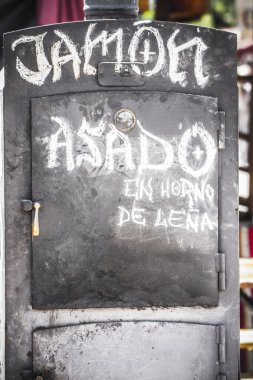 JAMON
ASADO
EN HORNO
DE LEÑA